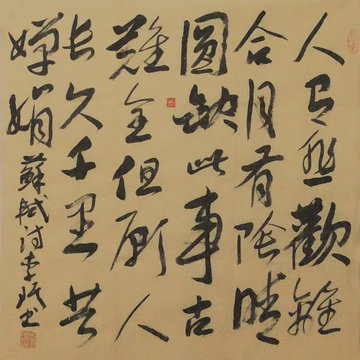 人有悲歡離
合月有陰晴
圓缺此事古
難全但願人
長久千里共
嬋娟 蘇軾詩李書